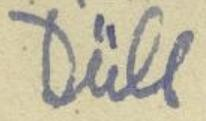 Düll